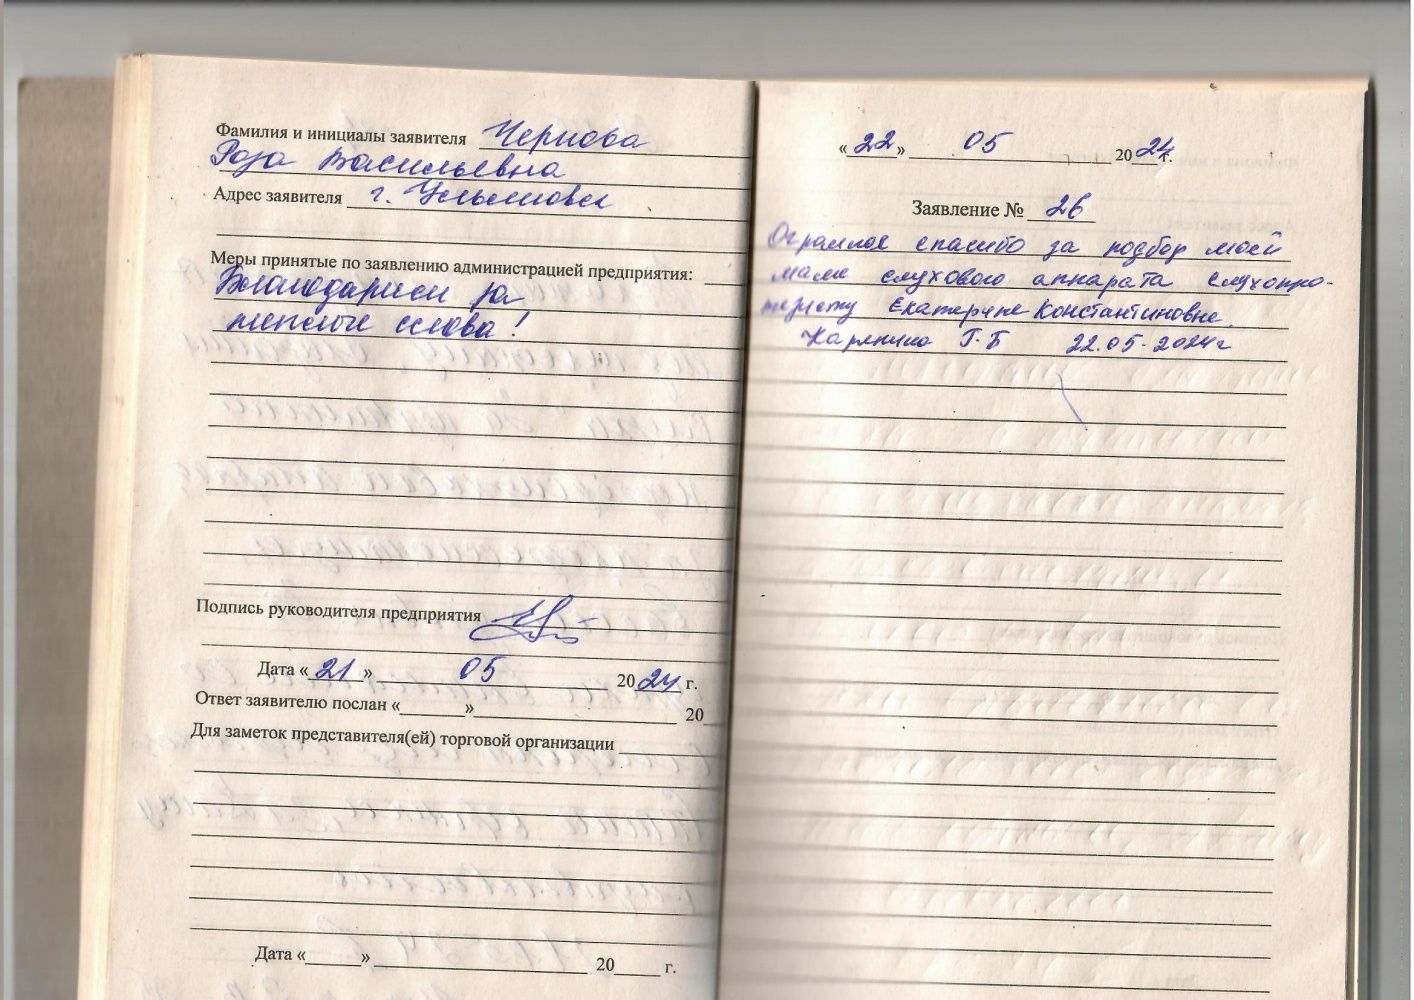 Фамилия и инициалы заявителя Чернова
Роза Васильевна
Адрес заявителя г. Ульяновск
Меры принятые по заявлению администрацией предприятия:
Благодарим за
теплые слова!
Подпись руководителя предприятия
Дата «21» 05 2024 г.
Ответ заявителю послан «______»______ 20
Для заметок представителя(ей) торговой организации
Дата «______» ______ 20_____ г.
«22» 05 2024 г.
Заявление № 26
Огромное спасибо за подбор моей
маме слухового аппарата слухопро-
тезисту Екатерине Константиновне.
Г.Б 22.05.2024 г